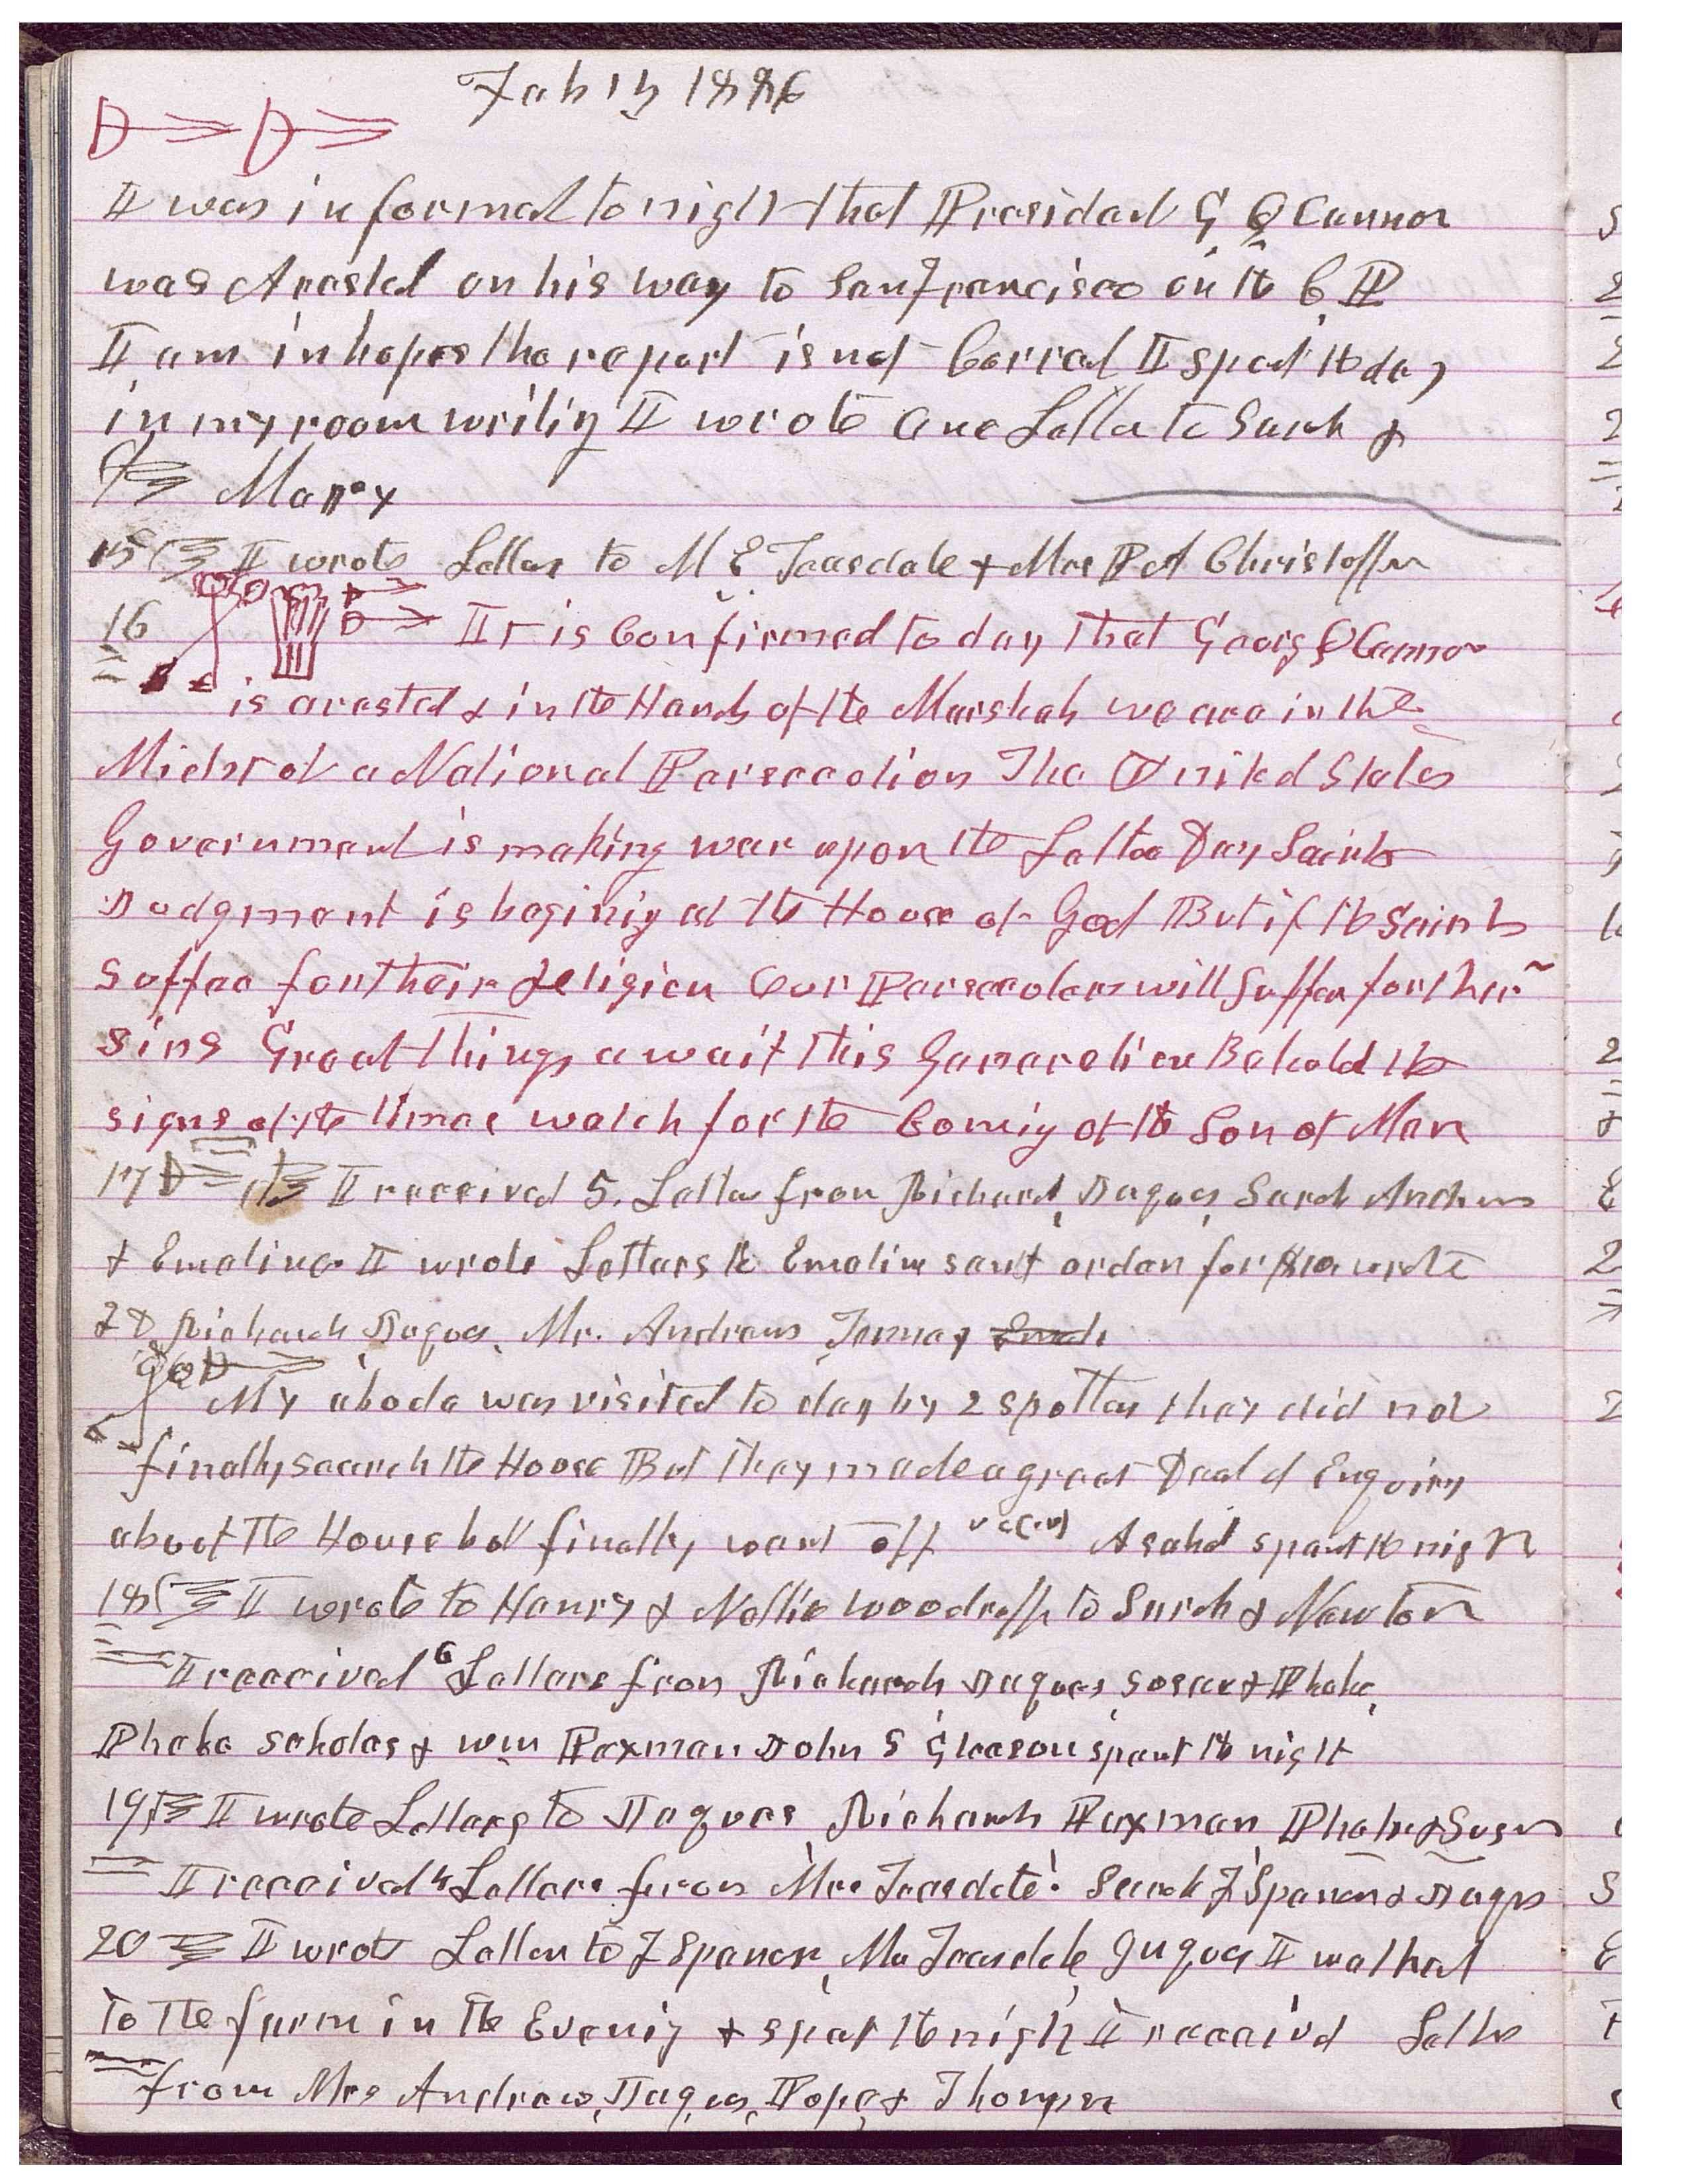 Feb 14 1886
I was informed to night that President G Q Cannon
was Arested on his way to San Francisco on the C P
I am in hopes the report is not Correct I spent the day
in my room writing I wrote one Letter to Sarah &
Mary
15 I wrote Letters to M E Teasdale & Mrs P A Christoffer
16 It is Confirmed to day that Georg Q Cannon
is arested & in the Hands of the Marshals we are in the
Midst of a National Persecution The United States
Government is making war upon the Latter Day Saints
Judgment is begining at the House of God But if the Saints
suffer for their religion Our Persecutors will suffer for their
sins Great things await this Generation Behold the
signs of the times watch for the Coming of the Son of Man
17 I received 5. Letters from Richards, Jaques, Sarah Andrews
& Emeline I wrote Letters to Emeline sent order for $10 wrote
2 to Richards Jaques, Mr. Andrews, Jenney
My abode was visited to day by 2 spotters they did not
finally search the House But they made a great Deal of Enquiry
about the House but finally went off Asahel spent the night
18 I wrote to Henry & Nellie Woodruff to Sarah & Newton
I received 6 Letters from Richards Jaques, Susan & Phebe,
Phebe Scholes & Wm Paxman John S Gleason spent the night
19 I wrote Letters to Jaques, Richards Paxman, Phebe & Susan
I received 4 Letters from Mrs Teasdale. Sarah F Spencer & Jaques
20 I wrote Letters to F Spencer, Mr Teasdale, Juques I walked
to the farm in the Evening & spent the night I received Letters
from Mrs Andrews, Jaques, Pope & Thompson